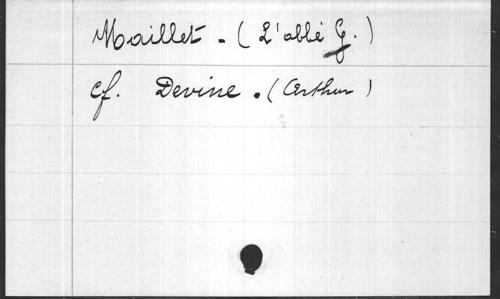 Maillet - (L'abbé G.)
cf. Devine. (Arthur)